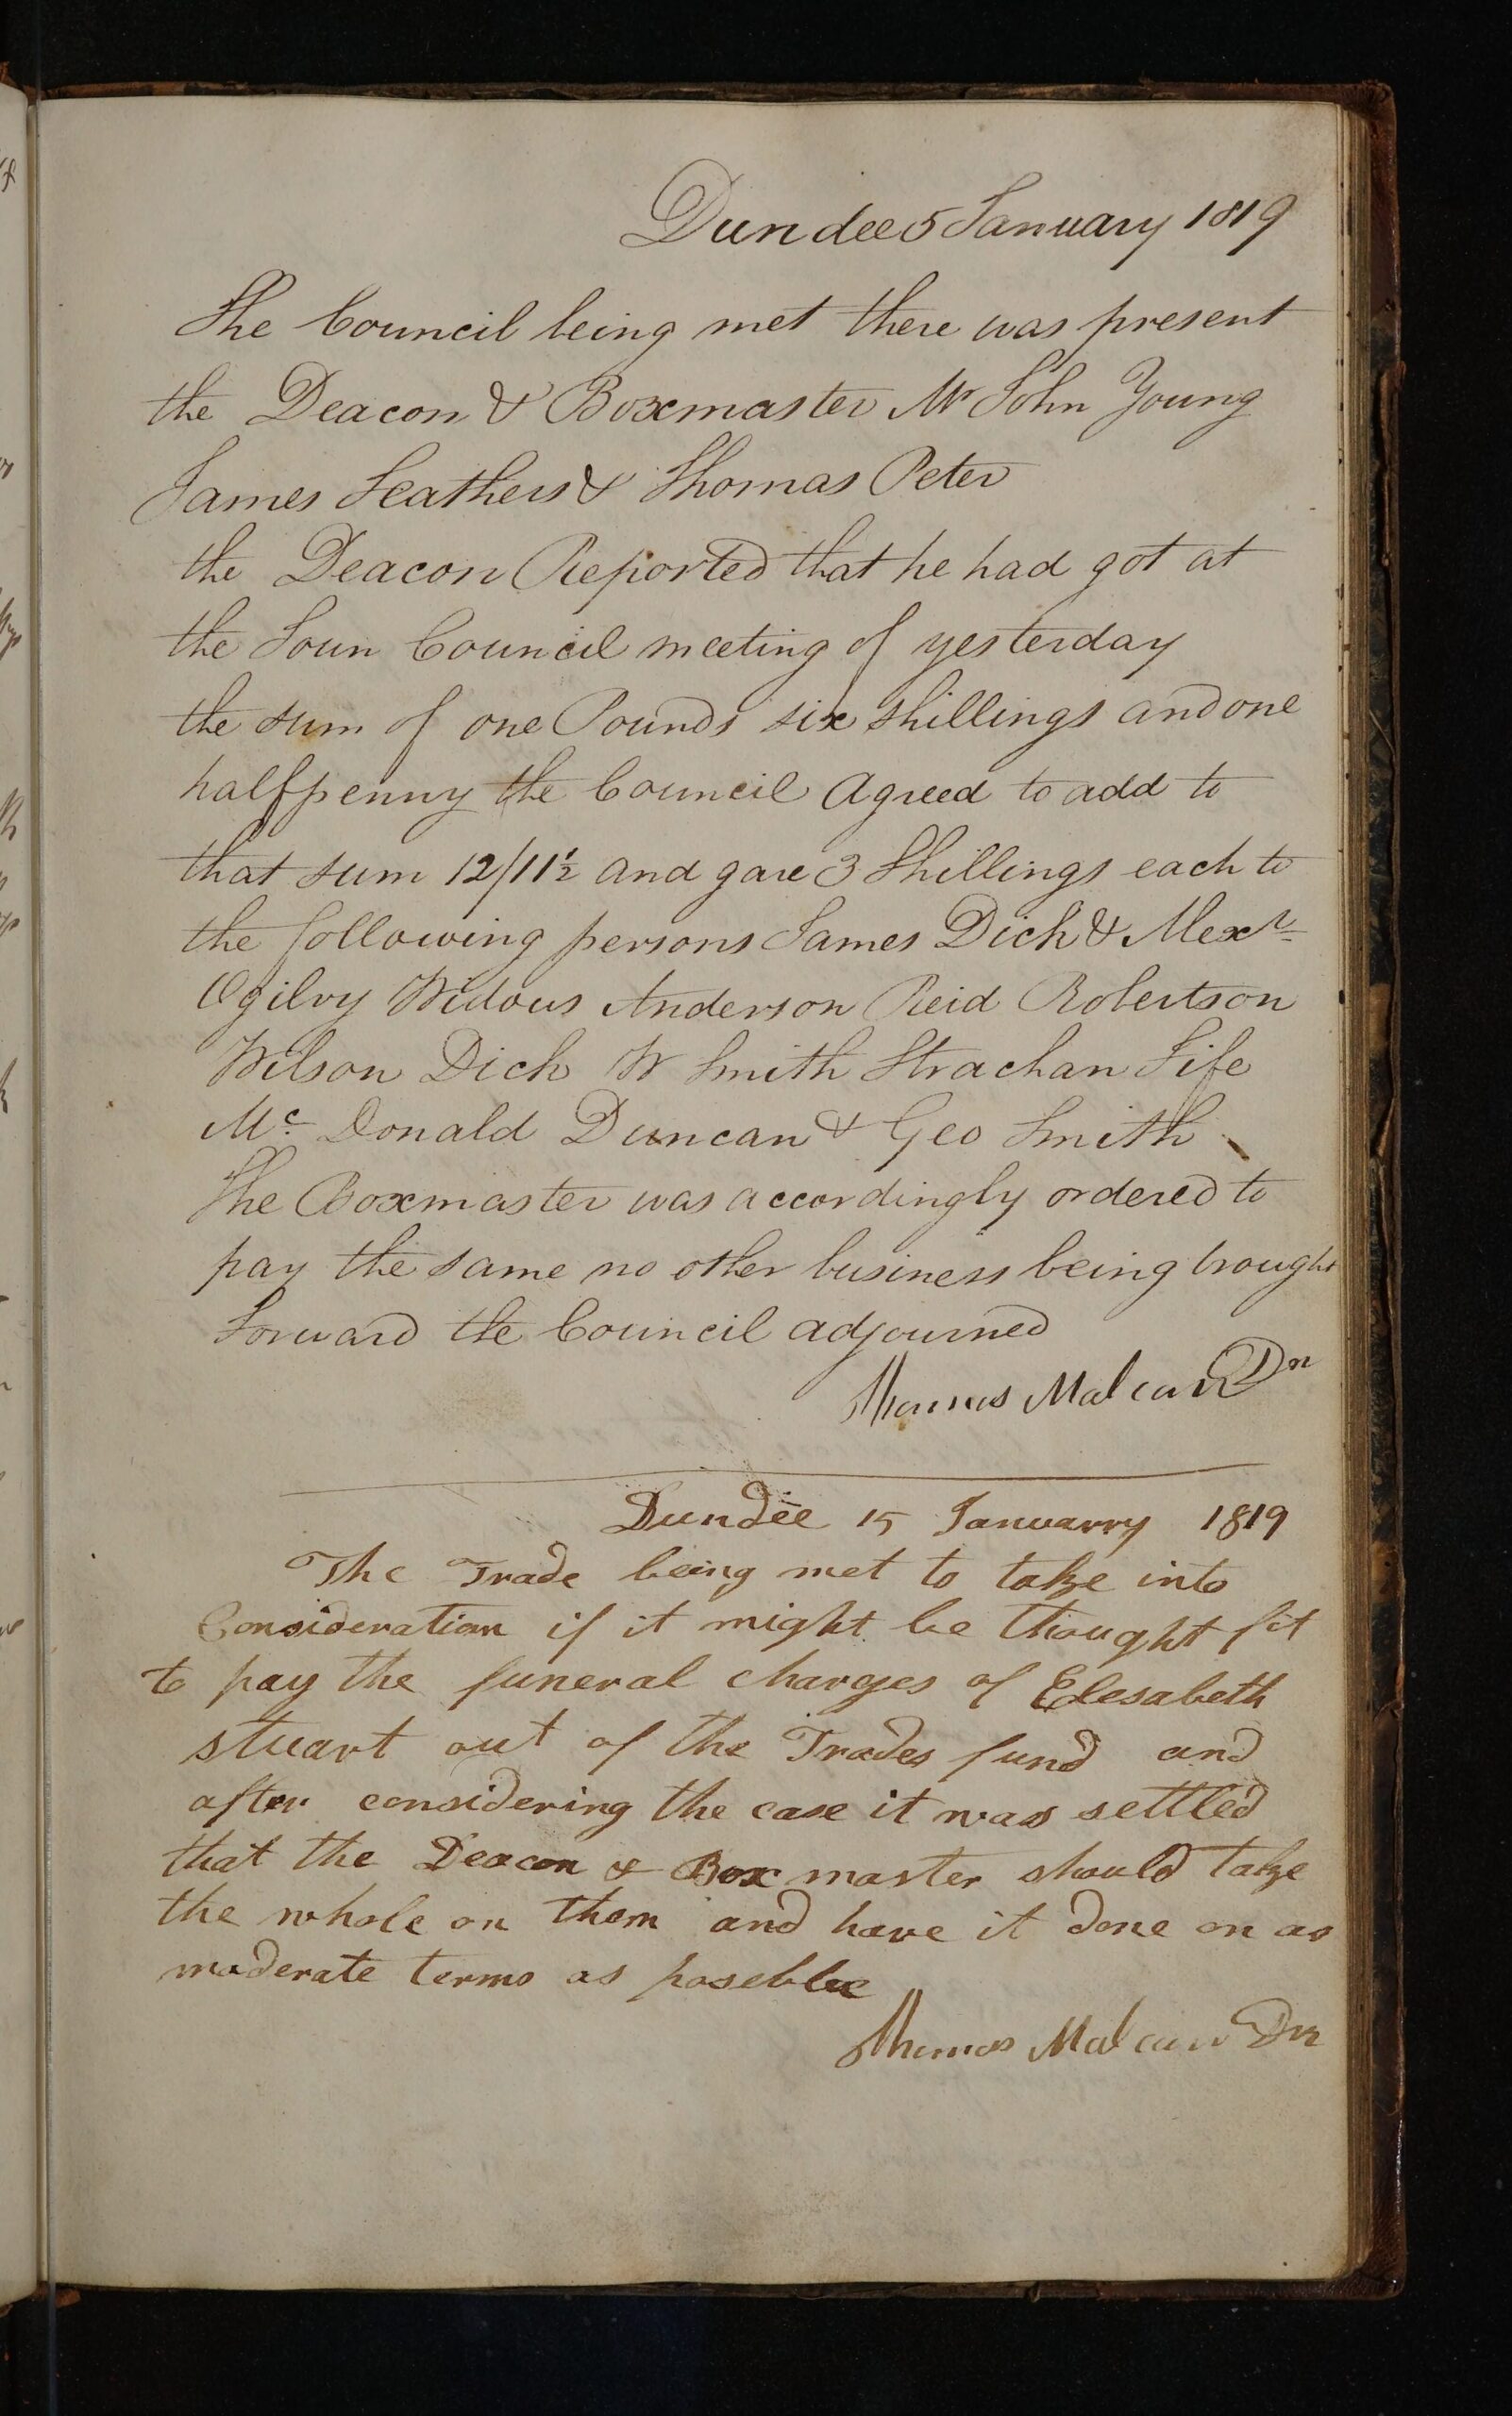 Dundee 5 January 1819
The Council being met there was present
the Deacon & Boxmaster Mr John Young
James Feathers & Thomas Peter
the Deacon Reported that he had got at
the Toun Council meeting of yesterday
the sum of one Pounds six shillings and one
halfpenny the Council Agreed to add to
that sum 12/11½ and gave 3 Shillings each to
the following persons James Dick & Alexr
Ogilvy Widows Anderson Reid Robertson
Wilson Dick W Smith Strachan Fife
Mc Donald Duncan & Geo Smith
The Boxmaster was accordingly ordered to
pay the same no other business being brought
forward the Council adjourned
Thomas Dn
Dundee 15 Januarry 1819
The Trade being met to take into
Consideration if it might be thought fit
to pay the funeral charges of Elesabeth
stuart out of the Trades fund and
after considering the case it was settled
that the Deacon & Box master should take
the whole on them and have it done on as
moderate terms as poseble
Thomas Dn